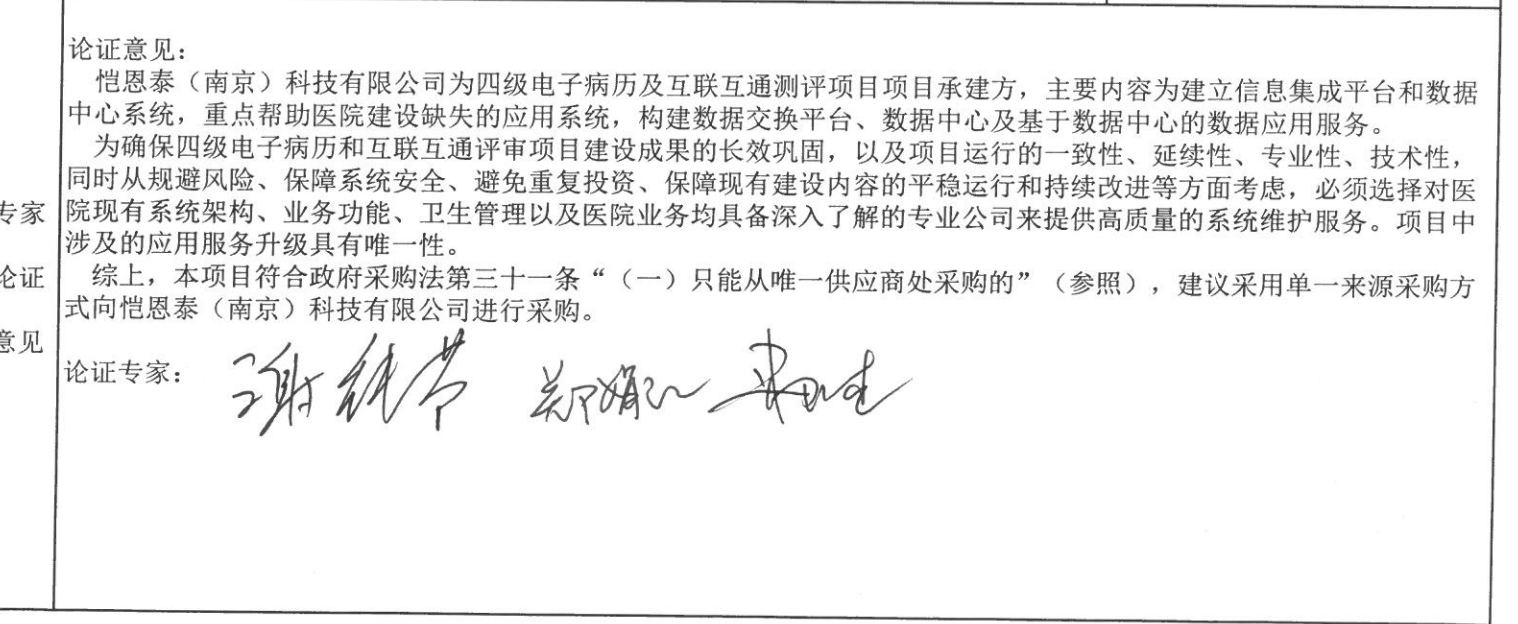 专家
论证
意见
论证意见：
恺恩泰（南京）科技有限公司为四级电子病历及互联互通测评项目项目承建方，主要内容为建立信息集成平台和数据
中心系统，重点帮助医院建设缺失的应用系统，构建数据交换平台、数据中心及基于数据中心的数据应用服务。
为确保四级电子病历和互联互通评审项目建设成果的长效巩固，以及项目运行的一致性、延续性、专业性、技术性，
同时从规避风险、保障系统安全、避免重复投资、保障现有建设内容的平稳运行和持续改进等方面考虑，必须选择对医
院现有系统架构、业务功能、卫生管理以及医院业务均具备深入了解的专业公司来提供高质量的系统维护服务。项目中
涉及的应用服务升级具有唯一性。
综上，本项目符合政府采购法第三十一条“（一）只能从唯一供应商处采购的”（参照），建议采用单一来源采购方
式向恺恩泰（南京）科技有限公司进行采购。
论证专家：